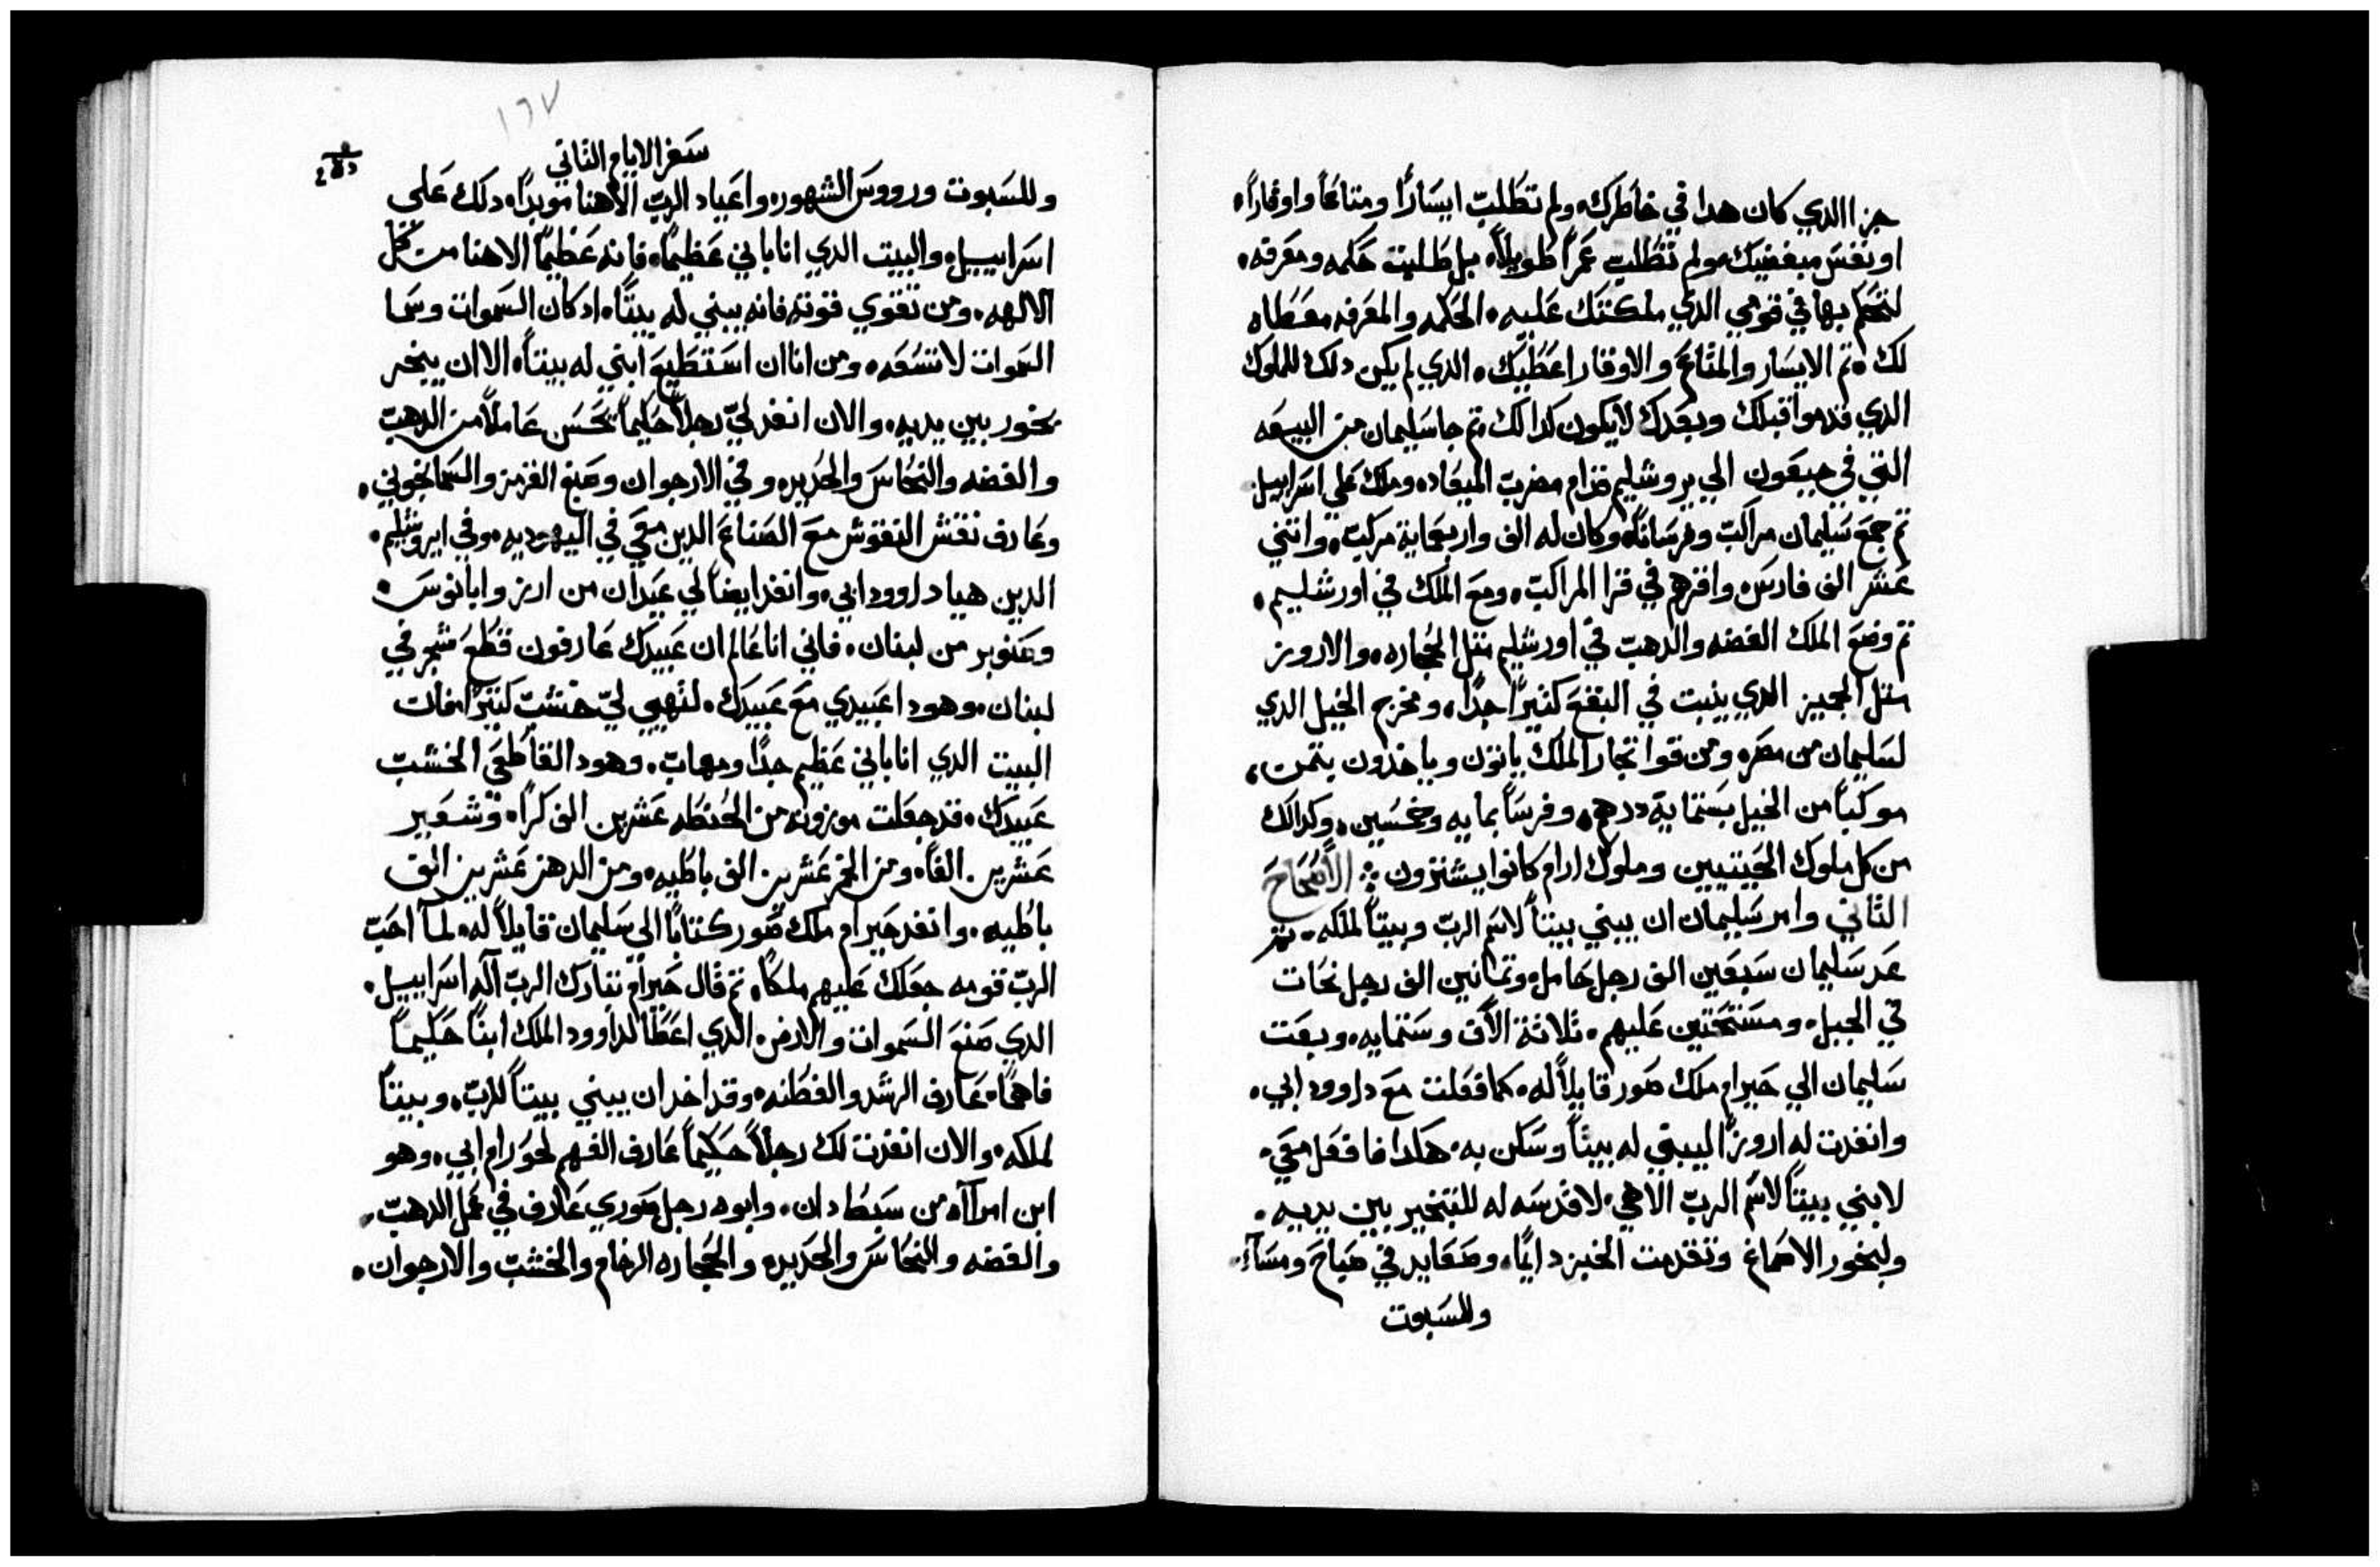 جزا الدي كان هدا في خاطرك ولم تطلب ايسارًا ومتاعًا واوقارًا
او نفس مبغضيك ولم تطلب عمرًا طويلاً بل طلبت حكمه ومعرفه
لتحكم بها في قومي الدي ملكتك عليه الحكمه والمعرفه معطاه
لك تم الايسار والمتاع والاوقار اعطيك الدي لم يكن دلك للملوك
الدي قدموا قبلك وبعدك لا يكون كدالك تم جا سليمان من البيعه
التي في جبعون الي يروشليم قدام مضرب الميعاد وملك علي اسراييل
تم جمع سليمان مراكب وفرسانًا وكان له الف واربعماية مركب واتني
عشر الف فارس واقرهم في قرا المراكب ومع الملك في اورشليم
تم وضع الملك الفضه والدهب في اورشليم متل الحجاره والاروز
متل الجميز الدي ينبت في البقع كتيرًا جدًا ومخرج الخيل الدي
لسليمان من مصر ومن قوا تجار الملك ياتون وياخدون بتمن
موكبًا من الخيل بستماية درهم وفرسًا بمايه وخمسين وكدالك
من كل ملوك الحيتيين وملوك ارام كانوا يشترون الاصحاح
التاني وامر سليمان ان يبني بيتًا لاسم الرب وبيتًا لملكه تم
عد سليمان سبعين الف رجل حامل وتمانين الف رجل نحات
في الجبل ومستحتين عليهم تلاتة الاف وستمايه وبعت
سليمان الي حيرام ملك صور قايلاً له كما فعلت مع داوود ابي
وانفدت له اروزًا ليبتي له بيتًا وسكن به هكدا فافعل معي
لابني بيتًا لاسم الرب الاهي لاقدسه له للتبخير بين يديه
ولبخور الاصماغ وتقدمت الخبز دايمًا وصعايد في صباح ومسآء
وللسبوت
١٦٧
سفر الايام التاني
وللسبوت ورووس الشهور واعياد الرب الاهنا موبدًا دلك علي
اسراييل والبيت الدي انا باني عظيمًا فانه عظيمًا الاهنا من كل
الالهه ومن تقوي قوته فانه يبني له بيتًا اد كان السموات وسما
السموات لا تسعه ومن انا ان استطيع ابني له بيتًا الا ان يبخر
بخور بين يديه والان انفد لي رجلاً حكيمًا يحسن عاملاً من الدهب
والفضه والنحاس والحديد وفي الارجوان وصبغ القرمز والسمانجوني
وعارف نقش النقوش مع الصناع الدين معي في اليهوديه وفي ايروشليم
الدين هيا داوود ابي وانفد ايضًا لي عيدان من ارز وابانوس
وصنوبر من لبنان فاني انا عالم ان عبيدك عارفون قطع شجر في
لبنان وهودا عبيدي مع عبيدك لتهيي لي خشب كتيرًا فان
البيت الدي انا باني عظيم جدًا ومهاب وهودا لقاطعي الخشب
عبيدك قد جعلت موزونه من الحنطه عشرين الف كرًا وشعير
عشرين الفًا ومن الخمر عشرين الف باطيه ومن الدهن عشرين الف
باطيه وانفد حيرام ملك صور كتابًا الي سليمان قايلاً له لما احب
الرب قومه جعلك عليهم ملكًا تم قال حيرام تبارك الرب اله اسراييل
الدي صنع السموات والارض الدي اعطا لداوود الملك ابنًا حكيمًا
فاهمًا عارف الرشد والفطنه وقد اخد ان يبني بيتًا للرب وبيتًا
لملكه والان انفدت لك رجلاً حكيمًا عارف الفهم لحورام ابي وهو
ابن امرآه من سبط دان وابوه رجل صوري عارف في عمل الدهب
والفضه والنحاس والحديد والحجاره الرخام والخشب والارجوان